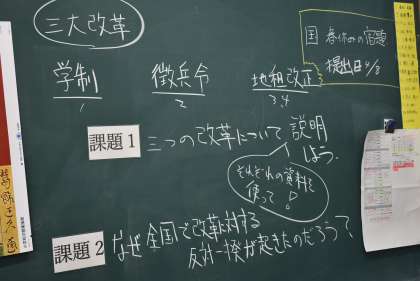 三大改革
国 春休みの宿題
提出日4/8
学制 徴兵令 地租改正
1 2 3 4
課題1 三つの改革について説明しよう。
それぞれの資料を
使って!
課題2 なぜ全国で改革に対する
反対一揆が起きたのだろう?